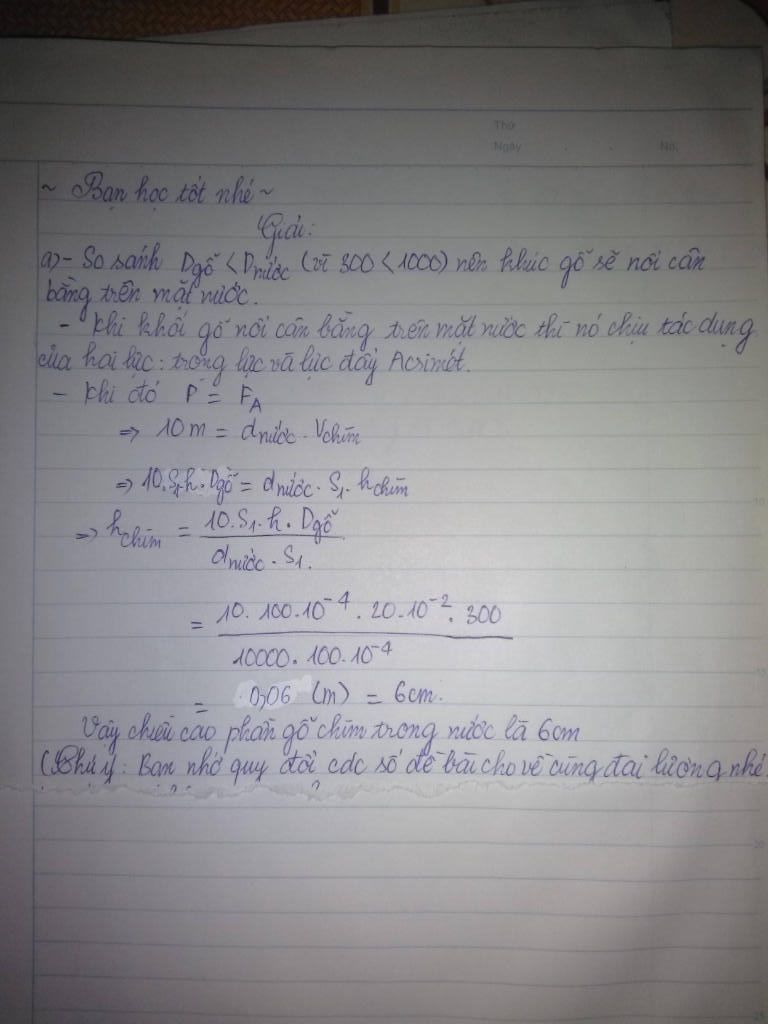 Thứ
Ngày . . No.
~ Bạn học tốt nhé ~
Giải:
a) - So sánh Dgỗ < Dnước (vì 300 < 1000) nên khúc gỗ sẽ nổi cân
bằng trên mặt nước.
- Khi khối gỗ nổi cân bằng trên mặt nước thì nó chịu tác dụng
của hai lực: trọng lực và lực đẩy Acsimét.
- Khi đó P = FA
=> 10m = dnước . Vchìm
=> 10.S1.h.Dgỗ = dnước . S1 . hchìm
=> hchìm = 10.S1.h.Dgỗ / dnước . S1.
= 10. 100.10^-4 . 20.10^-2 . 300 / 10000. 100.10^-4
= 0,06 (m) = 6cm.
Vậy chiều cao phần gỗ chìm trong nước là 6cm
(Chú ý: Bạn nhớ quy đổi các số đề bài cho về cùng đại lượng nhé